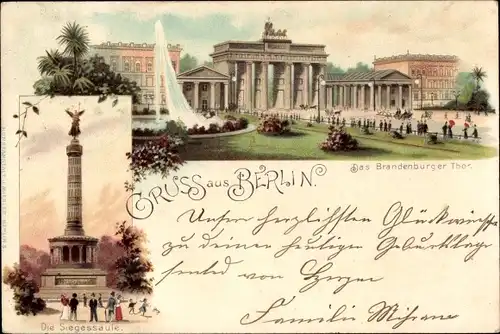 Das Brandenburger Thor.
GRUSS aus BERLIN.
Unsere herzlichsten Glückwünsche
zu deiner heutigen Geburtstage
sendet von Herzen
Familie
Die Siegessäule.